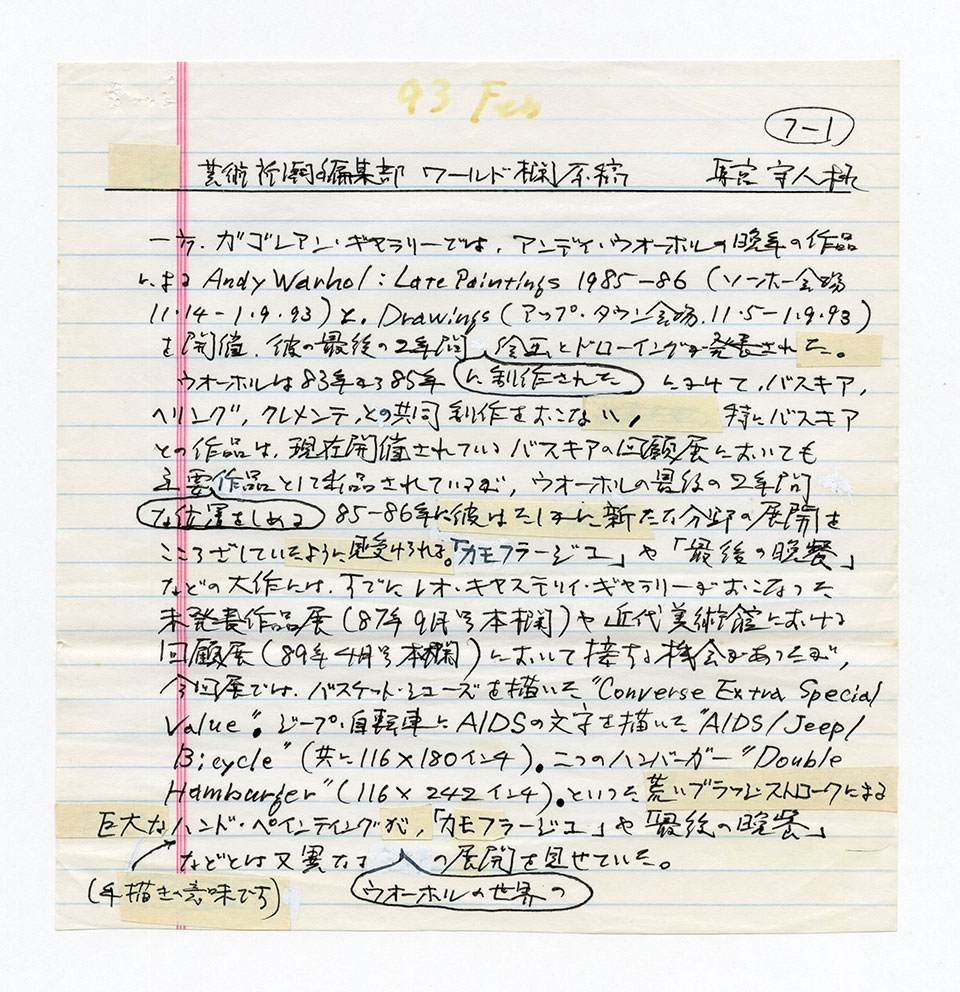 93 Feb
7-1
芸術新聞編集部 ワールド欄原稿 守人様
一方、ガゴシアン・ギャラリーでは、アンディ・ウオーホルの晩年の作品
による Andy Warhol : Late Paintings 1985-86 (ソーホー会場
11・14-1・9・93)と、Drawings (アップ・タウン会場、11・5-1・9・93)
を開催、彼の最後の2年間 絵画とドローイングが発表された。
ウオーホルは83年から85年 に制作された にかけて、バスキア、
ヘリング、クレメンテ、との共同制作をおこない、特にバスキア
との作品は、現在開催されているバスキアの回顧展においても
主要作品として出品されているが、ウオーホルの最後の2年間
な位置をしめる 85-86年に彼はたしかに新たな分野の展開を
こころざしていたように見受けられる。「カモフラージュ」や「最後の晩餐」
などの大作には、すでにレオ・キャステリィ・ギャラリーがおこなった
未発表作品展(87年9月号本欄)や近代美術館における
回顧展(89年4月号本欄)において接する機会があったが、
今回展では、バスケット・シューズを描いた "Converse Extra Special
Value"。ジープ・自転車にAIDSの文字を描いた "AIDS/Jeep/
Bicycle" (共に116×180インチ)。二つのハンバーガー "Double
Hamburger" (116×242インチ)。といった荒いブラッシュストロークによる
巨大なハンド・ペインティングが、「カモフラージュ」や「最後の晩餐」
などとは又異なる の展開を見せていた。
(手描きの意味です) ウオーホルの世界の